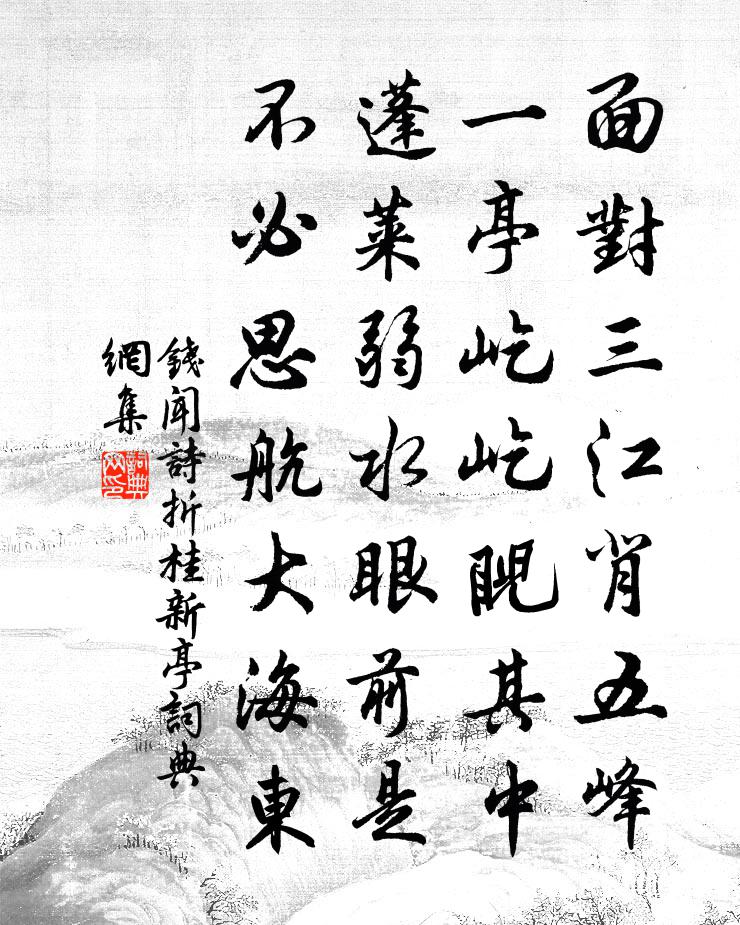 面對三江肖五峰
一亭屹屹睨其中
蓬萊弱水眼前是
不必思航大海東
錢聞詩折桂新亭詞典
網集
詞典
网印